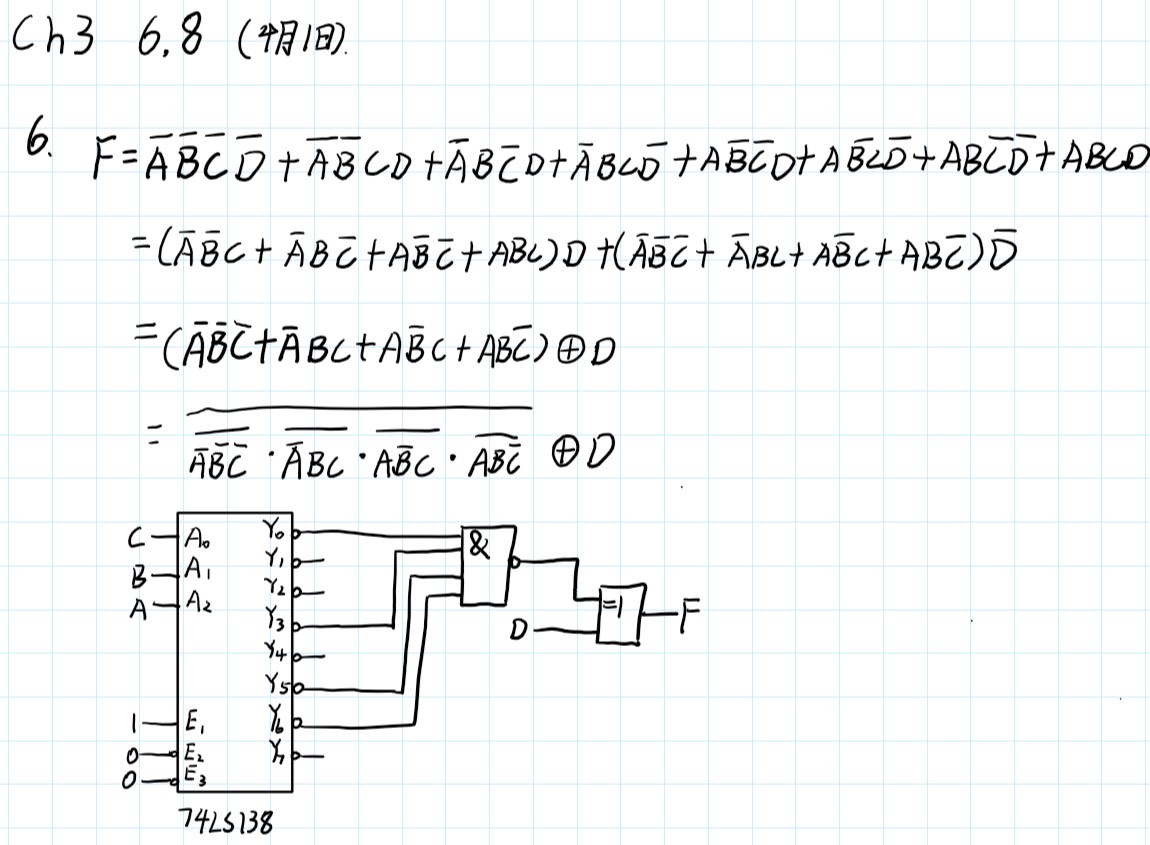 Ch3 6,8 (4月1日).
6. F = A̅B̅C̅D̅ + A̅B̅CD + A̅BC̅D + A̅BCD̅ + AB̅C̅D + AB̅CD̅ + ABC̅D̅ + ABCD
= (A̅B̅C + A̅BC̅ + AB̅C̅ + ABC)D + (A̅B̅C̅ + A̅BC + AB̅C + ABC̅)D̅
= (A̅B̅C̅ + A̅BC + AB̅C + ABC̅) ⊕ D
= \overline{\overline{A̅B̅C̅} · \overline{A̅BC} · \overline{AB̅C} · \overline{ABC̅}} ⊕ D
C A₀ Y₀ &
B A₁ Y₁
A A₂ Y₂
Y₃ D =1 F
Y₄
Y₅
1 E₁ Y₆
0 E₂ Y₇
0 E₃
74LS138